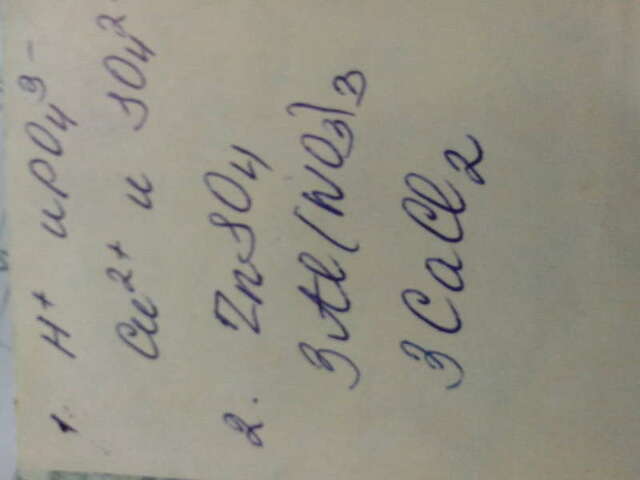 1. H⁺ и PO₄³⁻
Cu²⁺ и SO₄²
2. ZnSO₄
3Al(NO₃)₃
3CaCl₂